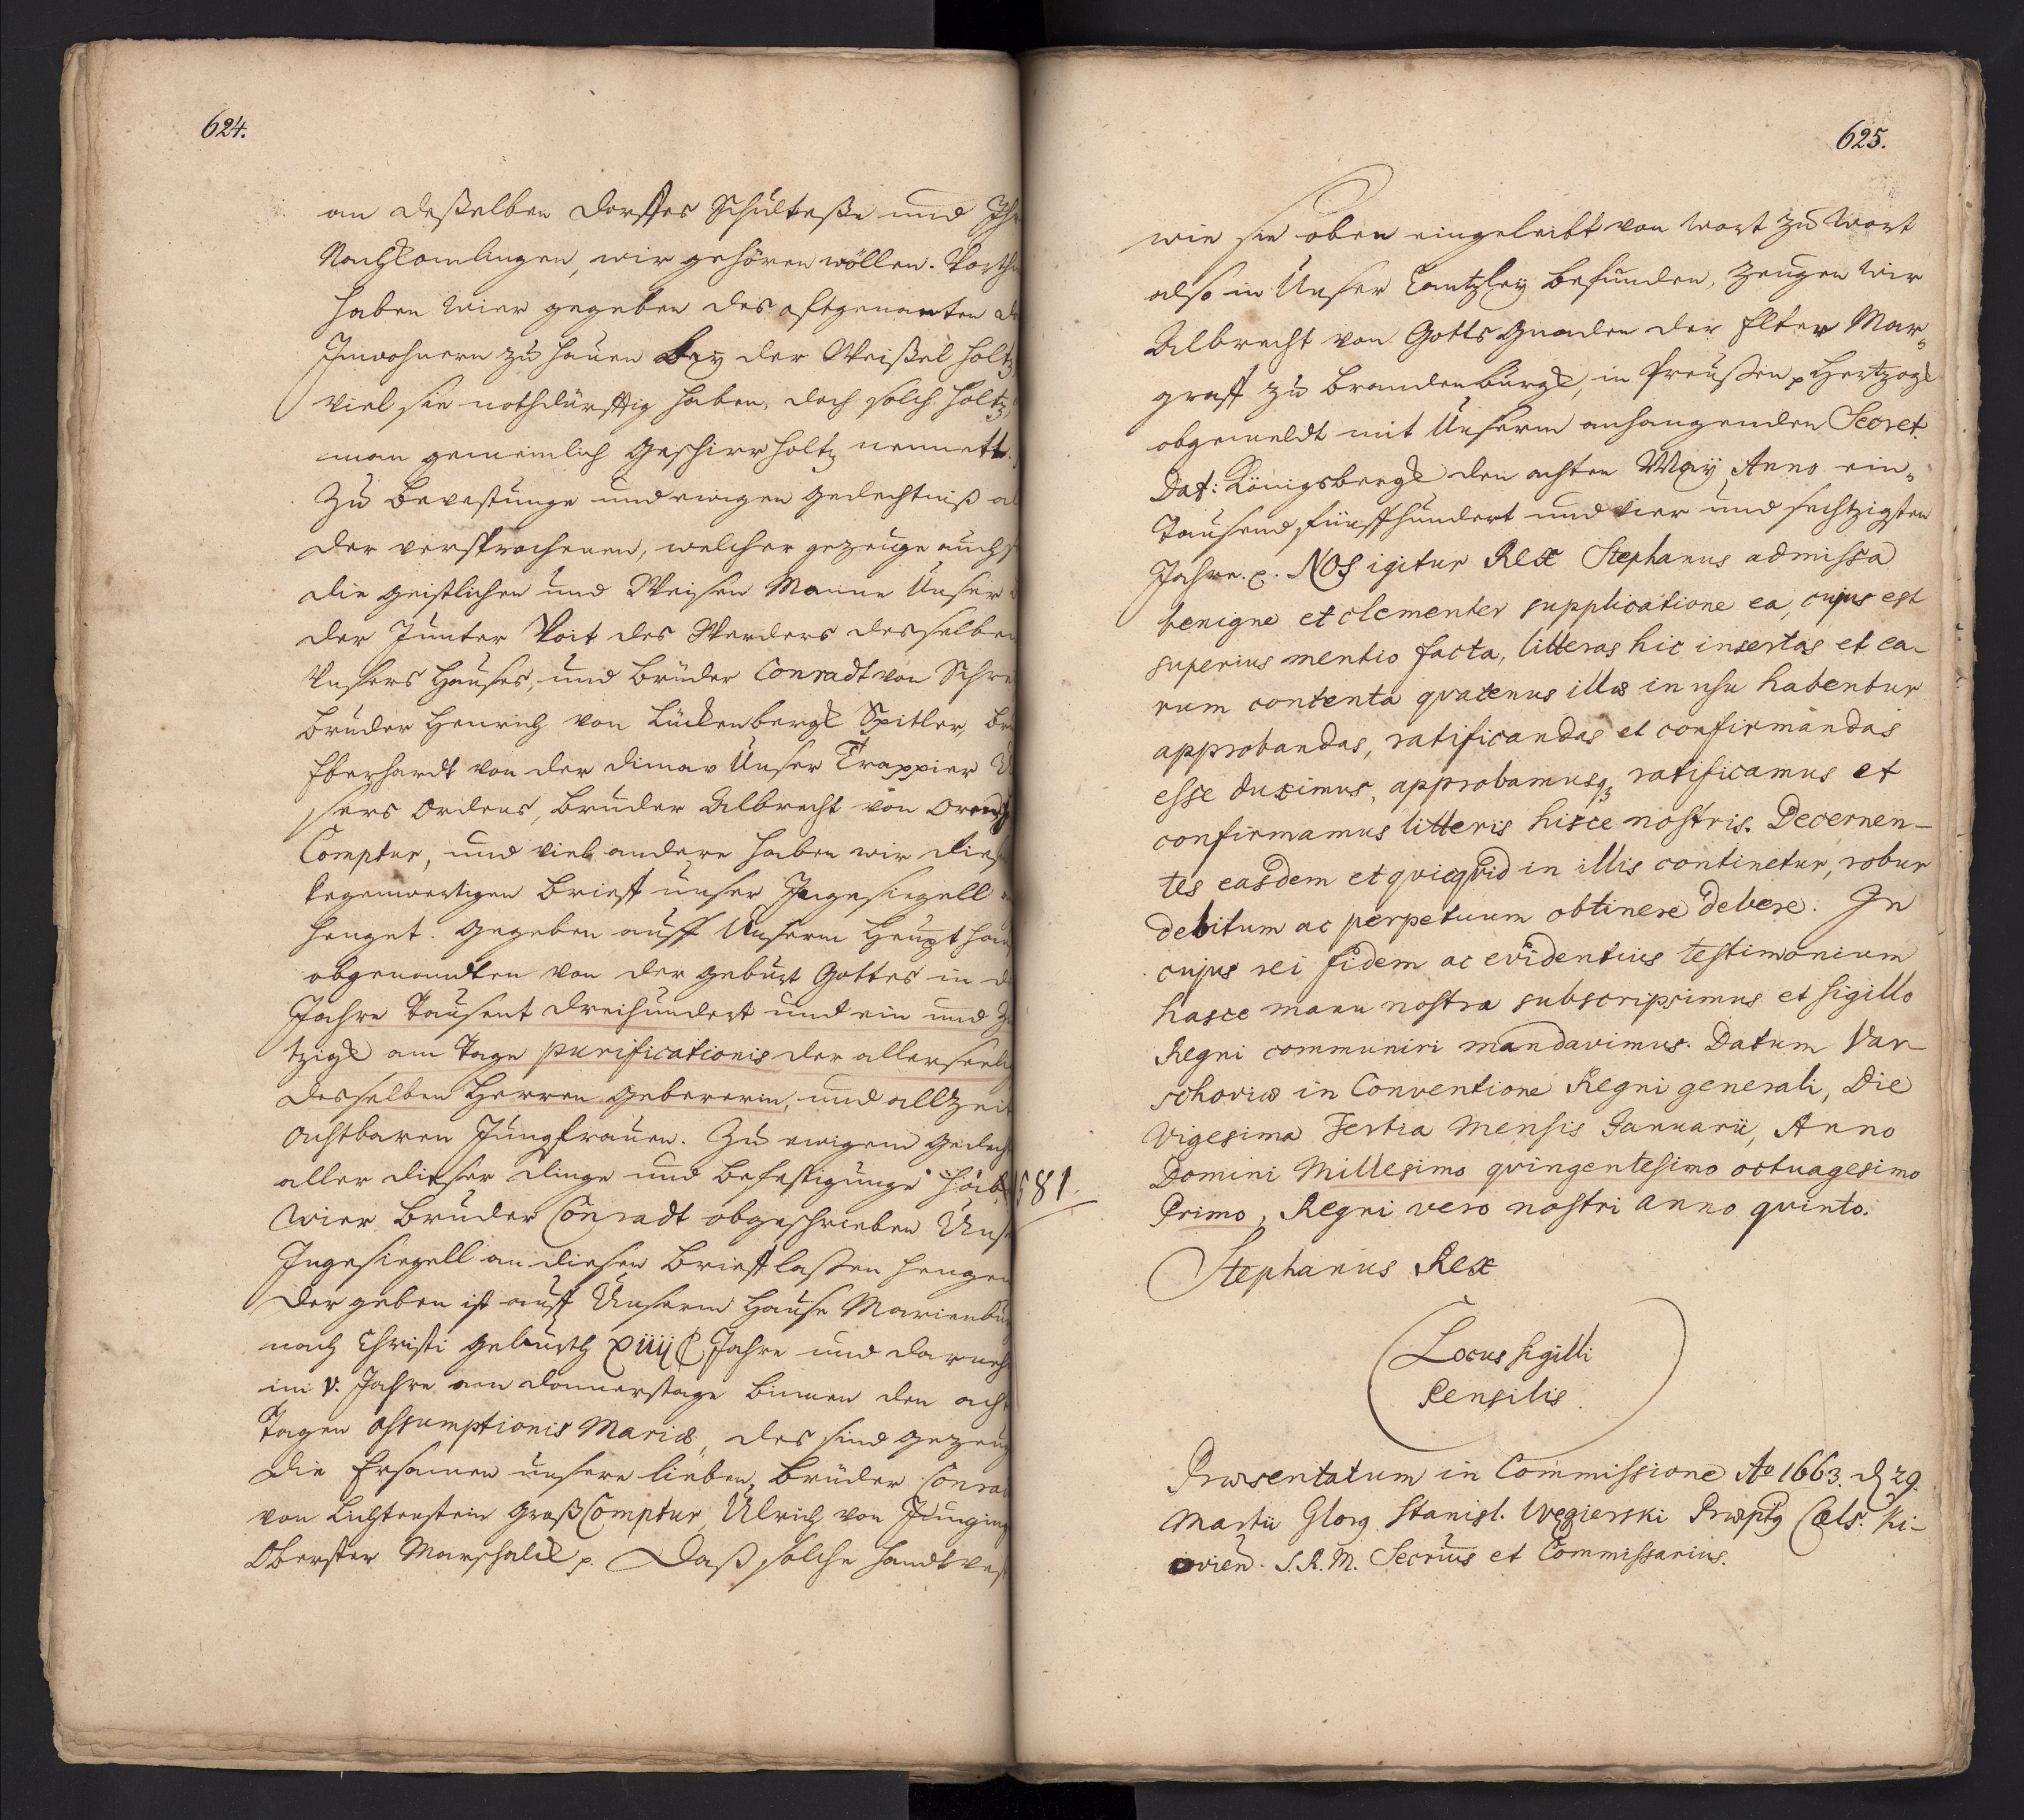 624.
an deßelben Dorffes Schulteße und Ih
Nachkomlingen, wir gehören wöllen. Vorth
haben wier gegeben des offtgenanten D
Inwohnern zu hauen Bey der Weißel holtz
viel sie nothdürfftig haben, doch solch holtz,
man gemeinlich Geschirrholtz nennett.
Zu bevestunge und ewigen gedechtniß al
der versprochenen, welcher gezeuge auch s
die geistlichen und Weisen Manne Unser
der Junter Voit des Werders desselben
Unsers Hauses, und Bruder Conradt von Schre
Bruder Henrich von Lückenbergk Spitler, br
Eberhardt von der Dimav Unser Trappier U
sers Ordens, Bruder Albrecht von Or
Comptur, und viel andere haben wir diesen
kegenwertigen Brieff unser Ingesiegell
henget. Gegeben auff Unserm Heupt hau
obgenandten von der geburt Gottes in d
Jahre Tausent dreihundert und ein und Z
tzigk am Tage purificationis der allerseeli
desselben Herren gebererin, und allzeit
Achtbaren Jungfrauen. Zu ewigem gedech
aller dieser dinge und befestigunge hab
Wier Bruder Conradt obgeschrieben Uns
Ingesiegell an diesen Brieff laßen hengen
Der geben ist auff Unserm Hause Marienbur
nach Christi geburth XIIII C Jahre und darneh
im V. Jahre am donnerstage binnen den ach
Tagen Assumptionis Mariæ, des sind gezeug
die Ersamen unsere lieben Brüder Conrad
von Lichtenstein Groß Comptur, Ulrich von Junging
Oberster Marschalck p. Daß solche handtves
625.
wie sie oben eingeleibt von Wort zu Wort
also in Unser Cantzley befunden, zeugen Wir
Albrecht von Gotts Gnaden der Elter Mar-
graff zu Brandenburgk, in Preußen p Hertzogk
obgemeldt mit Unserm anhangenden Secret.
Dat: Königsbergk den achten May, Anno ein-
Tausend fünffhundert und vier und sechtzigsten
Jahre. p. NOS igitur Rex Stephanus admissa
benigne et clementer supplicatione ea, cujus est
superius mentio facta, litteras hic insertas et ea-
rum contenta qvatenus illæ in usu habentur
approbandas, ratificandas et confirmandas
esse duximus, approbamusq, ratificamus et
confirmamus litteris hisce nostris. Decernen-
tes easdem et qvicqvid in illis continetur, robur
debitum ac perpetuum obtinere debere. In
cujus rei fidem ac evidentius testimonium
hasce manu nostra subscripsimus et sigillo
Regni communiri mandavimus. Datum Var-
schoviæ in Conventione Regni generali, Die
Vigesima Tertia Mensis Januarii, Anno
Domini Millesimo qvingentesimo octuagesimo
1581.
Primo, Regni vero nostri Anno qvinto.
Stephanus Rex
Locus sigilli
Pensilis.
Præsentatum in Commissione Ao 1663. d 29.
Martii Glorg Stanisl. Węgierski Præptg Cæls. Ki-
ovien. S.R.M. Secrius et Commissarius.